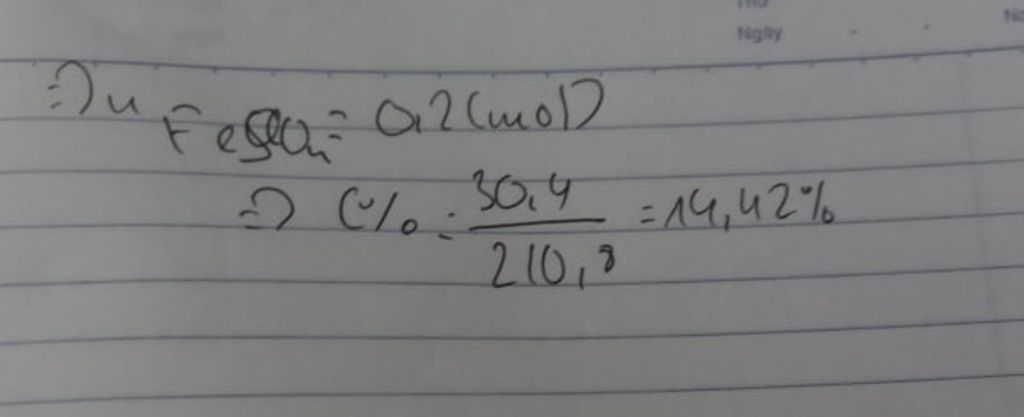 Ngày
=> n FeSO₄ = 0,2 (mol)
=> C% = 30,4 / 210,8 = 14,42%